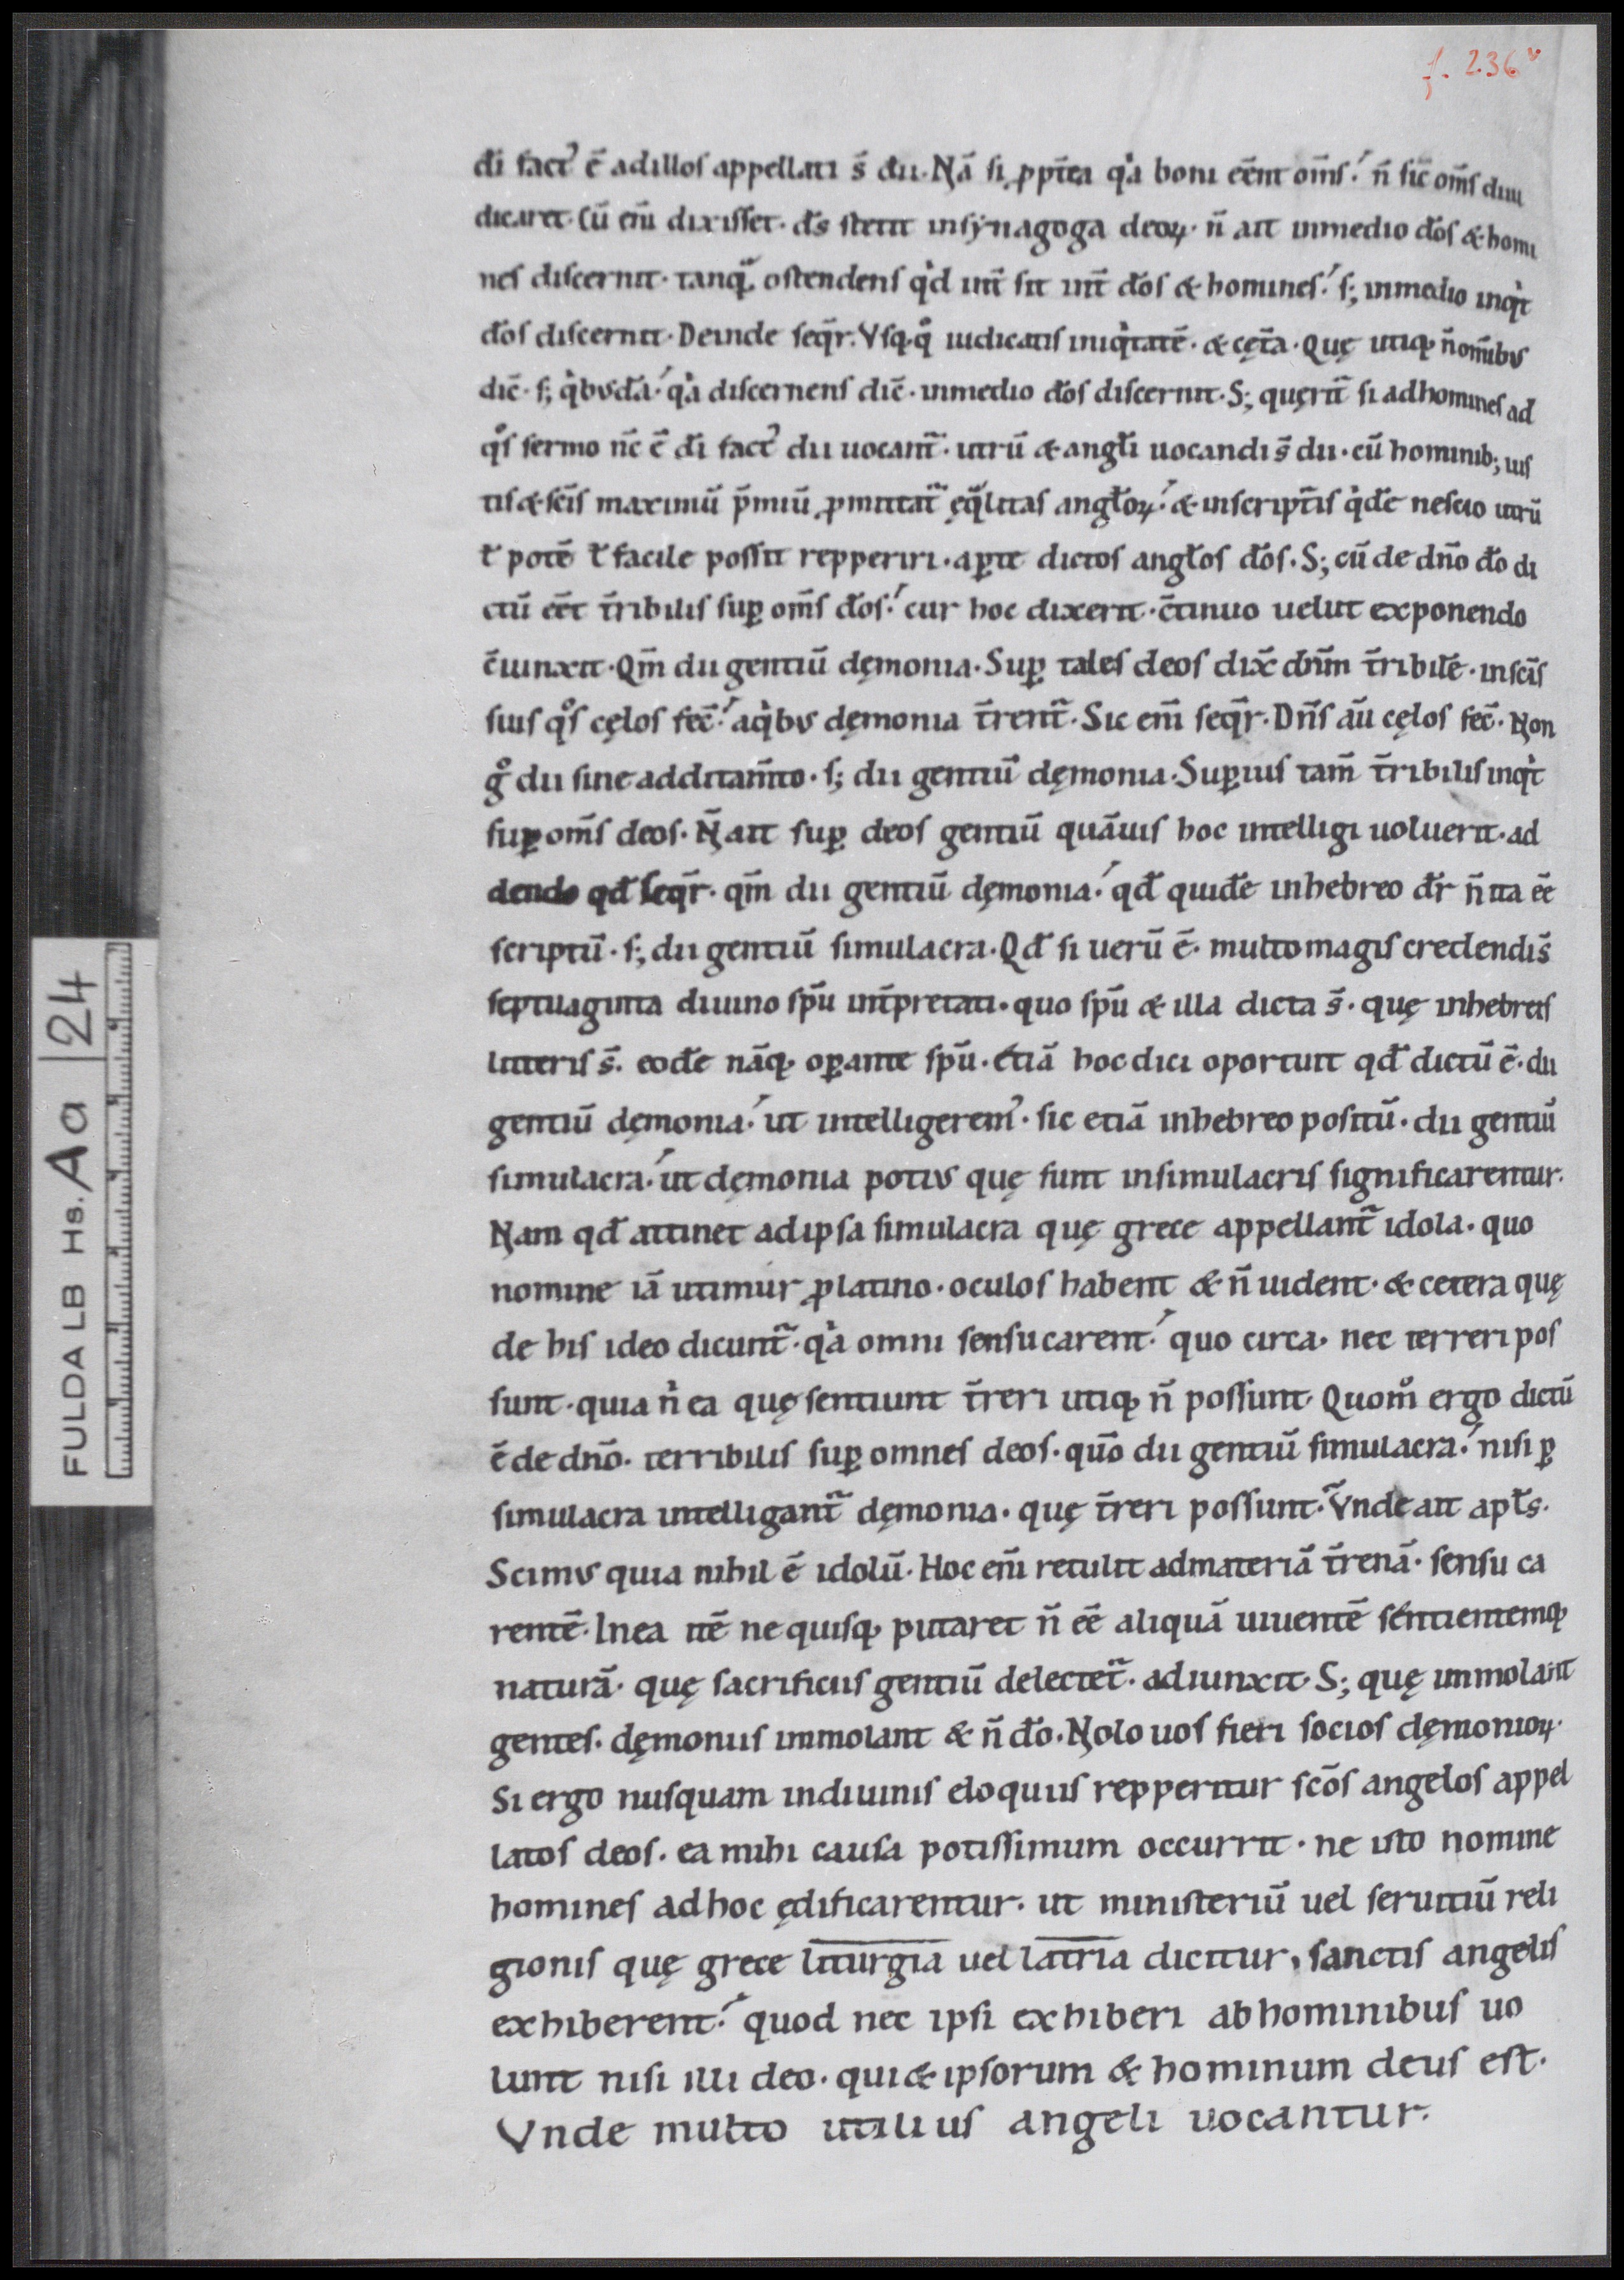 f. 236v
di̅ fact᾿ e̅ adillos appellati s̅ dii. Na̅ si ꝓpt̅ea qͥa boni ee̅nt om̅s. n̅ sic̅ om̅s diiu
dicaret. Cu̅ eni̅ dixisset. ds̅ stetit insẏnagoga deoꝝ. n̅ ait inmedio do̅s & homi
nes discernit. tanq̅ᷓ ostendens qͥd int̅ sit int̅ do̅s & homines. s; inmedio inqͥt
do̅s discernit. Deinde seq̅r. Vsq;qͦ iudicatis iniqͥtate̅. & cęt̅a. Quę utiq; n̅ om̅ibus
dic̅. s; qͥbusda̅. qͥa discernens dic̅. inmedio do̅s discernit. S; quęrit̅ si adhomines ad
qͦs sermo nc̅ e̅ di̅ fact᾿ dii uocant̅. utru̅ & angl̅i uocandi s̅ dii. cu̅ hominib; ius
tis & sc̅is maximu̅ p̅miu̅ ꝓmittat̅ ęqᷓlitas angl̅oꝝ. & inscript̅is qͥde̅ nescio utru̅
t̅ pote̅ t̅ facile possit repperiri. aꝑte dictos angl̅os do̅s. S; cu̅ de dn̅o do̅ di
ctu̅ ee̅t t̅ribilis suꝑ om̅s do̅s. cur hoc dixerit. c̅tinuo uelut exponendo
c̅iunxit. Qm̅ dii gentiu̅ dęmonia. Suꝑ tales deos dix̅ dn̅m t̅ribile̅. insc̅is
suis qͦs cęlos fec̅. aqͥbus dęmonia t̅rent̅. Sic eni̅ seq̅r. Dn̅s au̅ cęlos fec̅. Non
gͦ dii sine additam̅to. s; dii gentiu̅ dęmonia. Suꝑius tam̅ t̅ribilis inqͥt
suꝑ om̅s deos. N̅ ait suꝑ deos gentiu̅ qua̅uis hoc intelligi uoluerit. ad
dendo qd̅ seq̅r. qm̅ dii gentiu̅ dęmonia. qd̅ quide̅ inhebreo dr̅ n̅ ita ee̅
scriptu̅. s; dii gentiu̅ simulacra. Qd̅ si ueru̅ e̅. multo magis credendi s̅
septuaginta diuino spu̅ int̅pretati. quo spu̅ & illa dicta s̅. quę inhebreis
litteris s̅. eode̅ na̅q; oꝑante spu̅. etia̅ hoc dici oportuit qd̅ dictu̅ e̅. dii
gentiu̅ dęmonia. ut intelligerem᾿. sic etia̅ inhebreo positu̅. dii gentiu̅
simulacra. ut dęmonia potius quę sunt insimulacris significarentur.
Nam qd̅ attinet adipsa simulacra quę grece appellant̅ idola. quo
nomine ia̅ utimur ꝓlatino. oculos habent & n̅ uident. & cetera quę
de his ideo dicunt̅. qͥa omni sensu carent. quo circa. nec terreri pos
sunt. quia n̅ ea quę sentiunt t̅reri utiq; n̅ possunt. Quomͦ ergo dictu̅
e̅ de dn̅o. terribilis suꝑ omnes deos. quo̅ dii gentiu̅ simulacra. nisi ꝑ
simulacra intelligant̅ dęmonia. quę t̅reri possunt. Vnde ait apl̅s.
Scimus quia nihil e̅ idolu̅. Hoc eni̅ retulit admateria̅ t̅rena̅. sensu ca
rente̅. Inea ite̅ ne quisq; putaret n̅ ee̅ aliqua̅ uiuente̅ sentientemq;
natura̅. quę sacrificiis gentiu̅ delectet̅. adiunxit. S; quę immolant
gentes. dęmoniis immolant & n̅ do̅. Nolo uos fieri socios dęmonioꝝ.
Si ergo nusquam indiuinis eloquiis repperitur sco̅s angelos appel
latos deos. ea mihi causa potissimum occurrit. ne isto nomine
homines adhoc ędificarentur. ut ministeriu̅ uel seruitiu̅ reli
gionis quę grece liturgia uel latria dicitur, sanctis angelis
exhiberent. quod nec ipsi exhiberi abhominibus uo
lunt nisi illi deo. qui & ipsorum & hominum deus est.
Vnde multo utilius angeli uocantur.
FULDA LB Hs. Aa 24